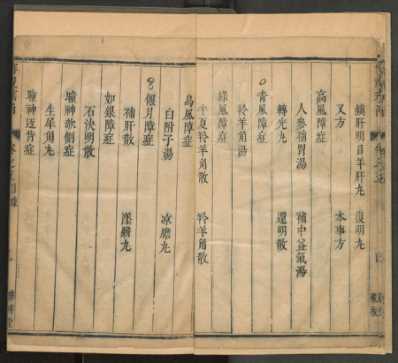 鎮肝明目羊肝丸 復明丸
又方 本事方
高風障症
人參補胃湯 補中益氣湯
轉光丸 還明散
青風障症
羚羊角湯
綠風障症
半夏羚羊角散 羚羊角散
烏風障症
白附子湯 凉膽丸
偃月障症
補肝散 墜翳丸
如銀障症
石決明散
瞳神欹側症
生犀角丸
瞳神返背症